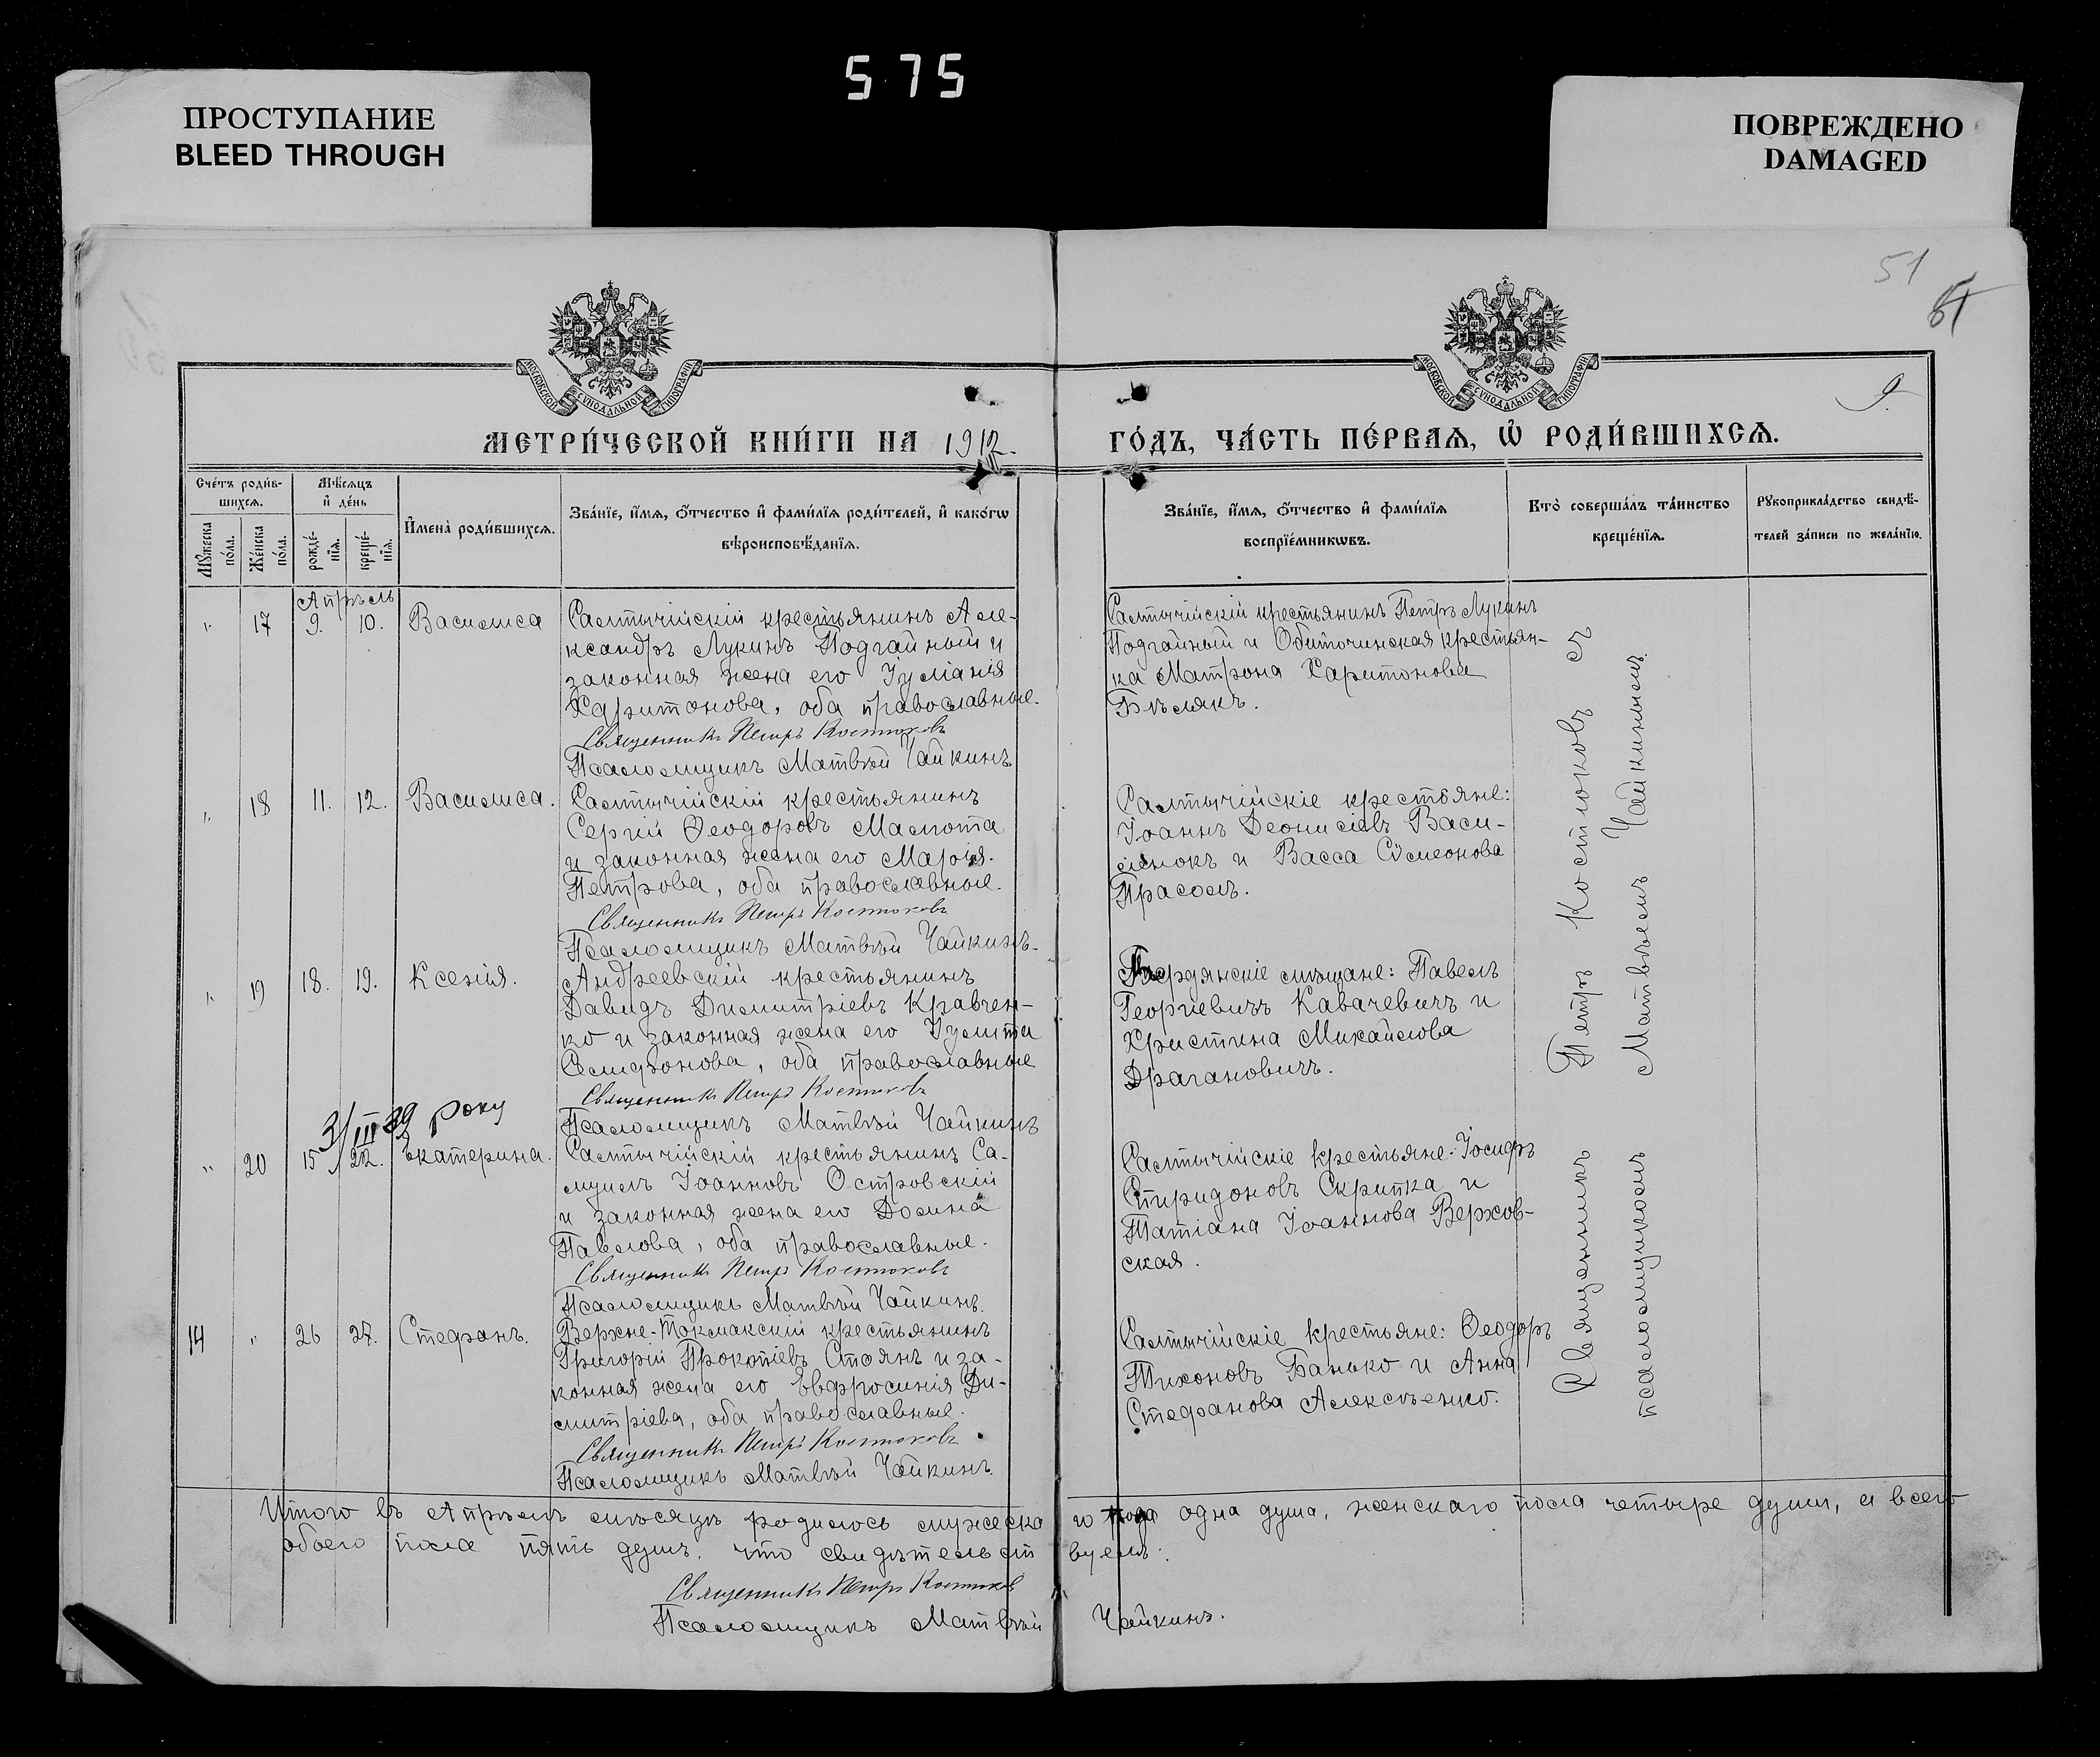 575
ПРОСТУПАНИЕ
BLEED THROUGH
ПОВРЕЖДЕНО
DAMAGED
51
51
9.
МОСКОВСКОЙ СѴНОДАЛЬНОЙ ТИПОГРАФІИ
МОСКОВСКОЙ СѴНОДАЛЬНОЙ ТИПОГРАФІИ
МЕТРИ́ЧЕСКОЙ КНИ́ГИ НА 1912. ГО́ДЪ, ЧА́СТЬ ПЕ́РВАЯ, Ѽ РОДИ́ВШИХСЯ.
Сче́тъ роди́в-
шихся.
Мѣ́сяцъ
и҆ де́нь
Мꙋ́жеска
по́ла.
Же́нска
по́ла.
рожде́-
нїя.
креще́-
нїя.
И҆мена̀ роди́вшихся.
Зва́нїе, и҆́мя, ѻ҆́тчество и҆ фами́лїя роди́телей, и҆ како́гѡ
вѣроисповѣ́данїя.
Зва́нїе, и҆́мя, ѻ҆́тчество и҆ фами́лїя
воспрїе́мникѡвъ.
Кто̀ соверша́лъ та́инство
креще́нїя.
Рꙋкоприкла́дство свидѣ́-
телей за́писи по жела́нїю.
Апрѣль
" 17 9. 10. Василиса
Салтычійскій крестьянинъ Але-
ксандръ Лукинъ Подгайный и
законная жена его Іуліанія
Харитонова, оба православные.
Священникъ Петръ Костюковъ
Псаломщикъ Матвѣй Чайкинъ
Салтычійскій крестьянинъ Петръ Лукинъ
Подгайный и Обиточинская крестьян-
ка Матрона Харитонова
Бѣлякъ.
" 18 11. 12. Василиса.
Салтычійскій крестьянинъ
Сергій Ѳеодоровъ Малюта
и законная жена его Марія
Петрова, оба православные.
Священникъ Петръ Костюковъ
Псаломщикъ Матвѣй Чайкинъ
Салтычійскіе крестьяне:
Іоаннъ Діонисіевъ Васи-
ленокъ и Васса Сѵмеонова
Прасолъ.
" 19 18. 19. Ксенія.
Андреевскій крестьянинъ
Давидъ Димитріевъ Кравчен-
ко и законная жена его Іулитта
Самсонова, оба православные
Священникъ Петръ Костюковъ
Псаломщикъ Матвѣй Чайкинъ
Бердянскіе мѣщане: Павелъ
Георгіевичъ Кавачевичъ и
Христина Михайлова
Драгановичъ.
3/III 39 року
" 20 15 22. Екатерина.
Салтычійскій крестьянинъ Са-
муилъ Іоанновъ Островскій
и законная жена его Домна
Павлова, оба православные.
Священникъ Петръ Костюковъ
Псаломщикъ Матвѣй Чайкинъ.
Салтычійскіе крестьяне: Іосифъ
Спиридоновъ Скрипка и
Татіана Іоаннова Верхов-
ская.
14 " 26 27. Стефанъ.
Верхне-Токмакскій крестьянинъ
Григорій Прокопіевъ Стоянъ и за-
конная жена его Евфросинія Ди-
митріева, оба православные.
Священникъ Петръ Костюковъ
Псаломщикъ Матвѣй Чайкинъ
Салтычійскіе крестьяне: Ѳеодоръ
Тихоновъ Банько и Анна
Стефанова Алексѣенко.
Священникъ Петръ Костюковъ съ
псаломщикомъ Матвѣемъ Чайкинымъ
Итого въ Апрѣлѣ мѣсяцѣ родилось мужеска го пола одна душа, женскаго пола четыре души, а всего
обоего пола пять душъ, что свидѣтельст вуемъ:
Священникъ Петръ Костюковъ
Псаломщикъ Матвѣй Чайкинъ.